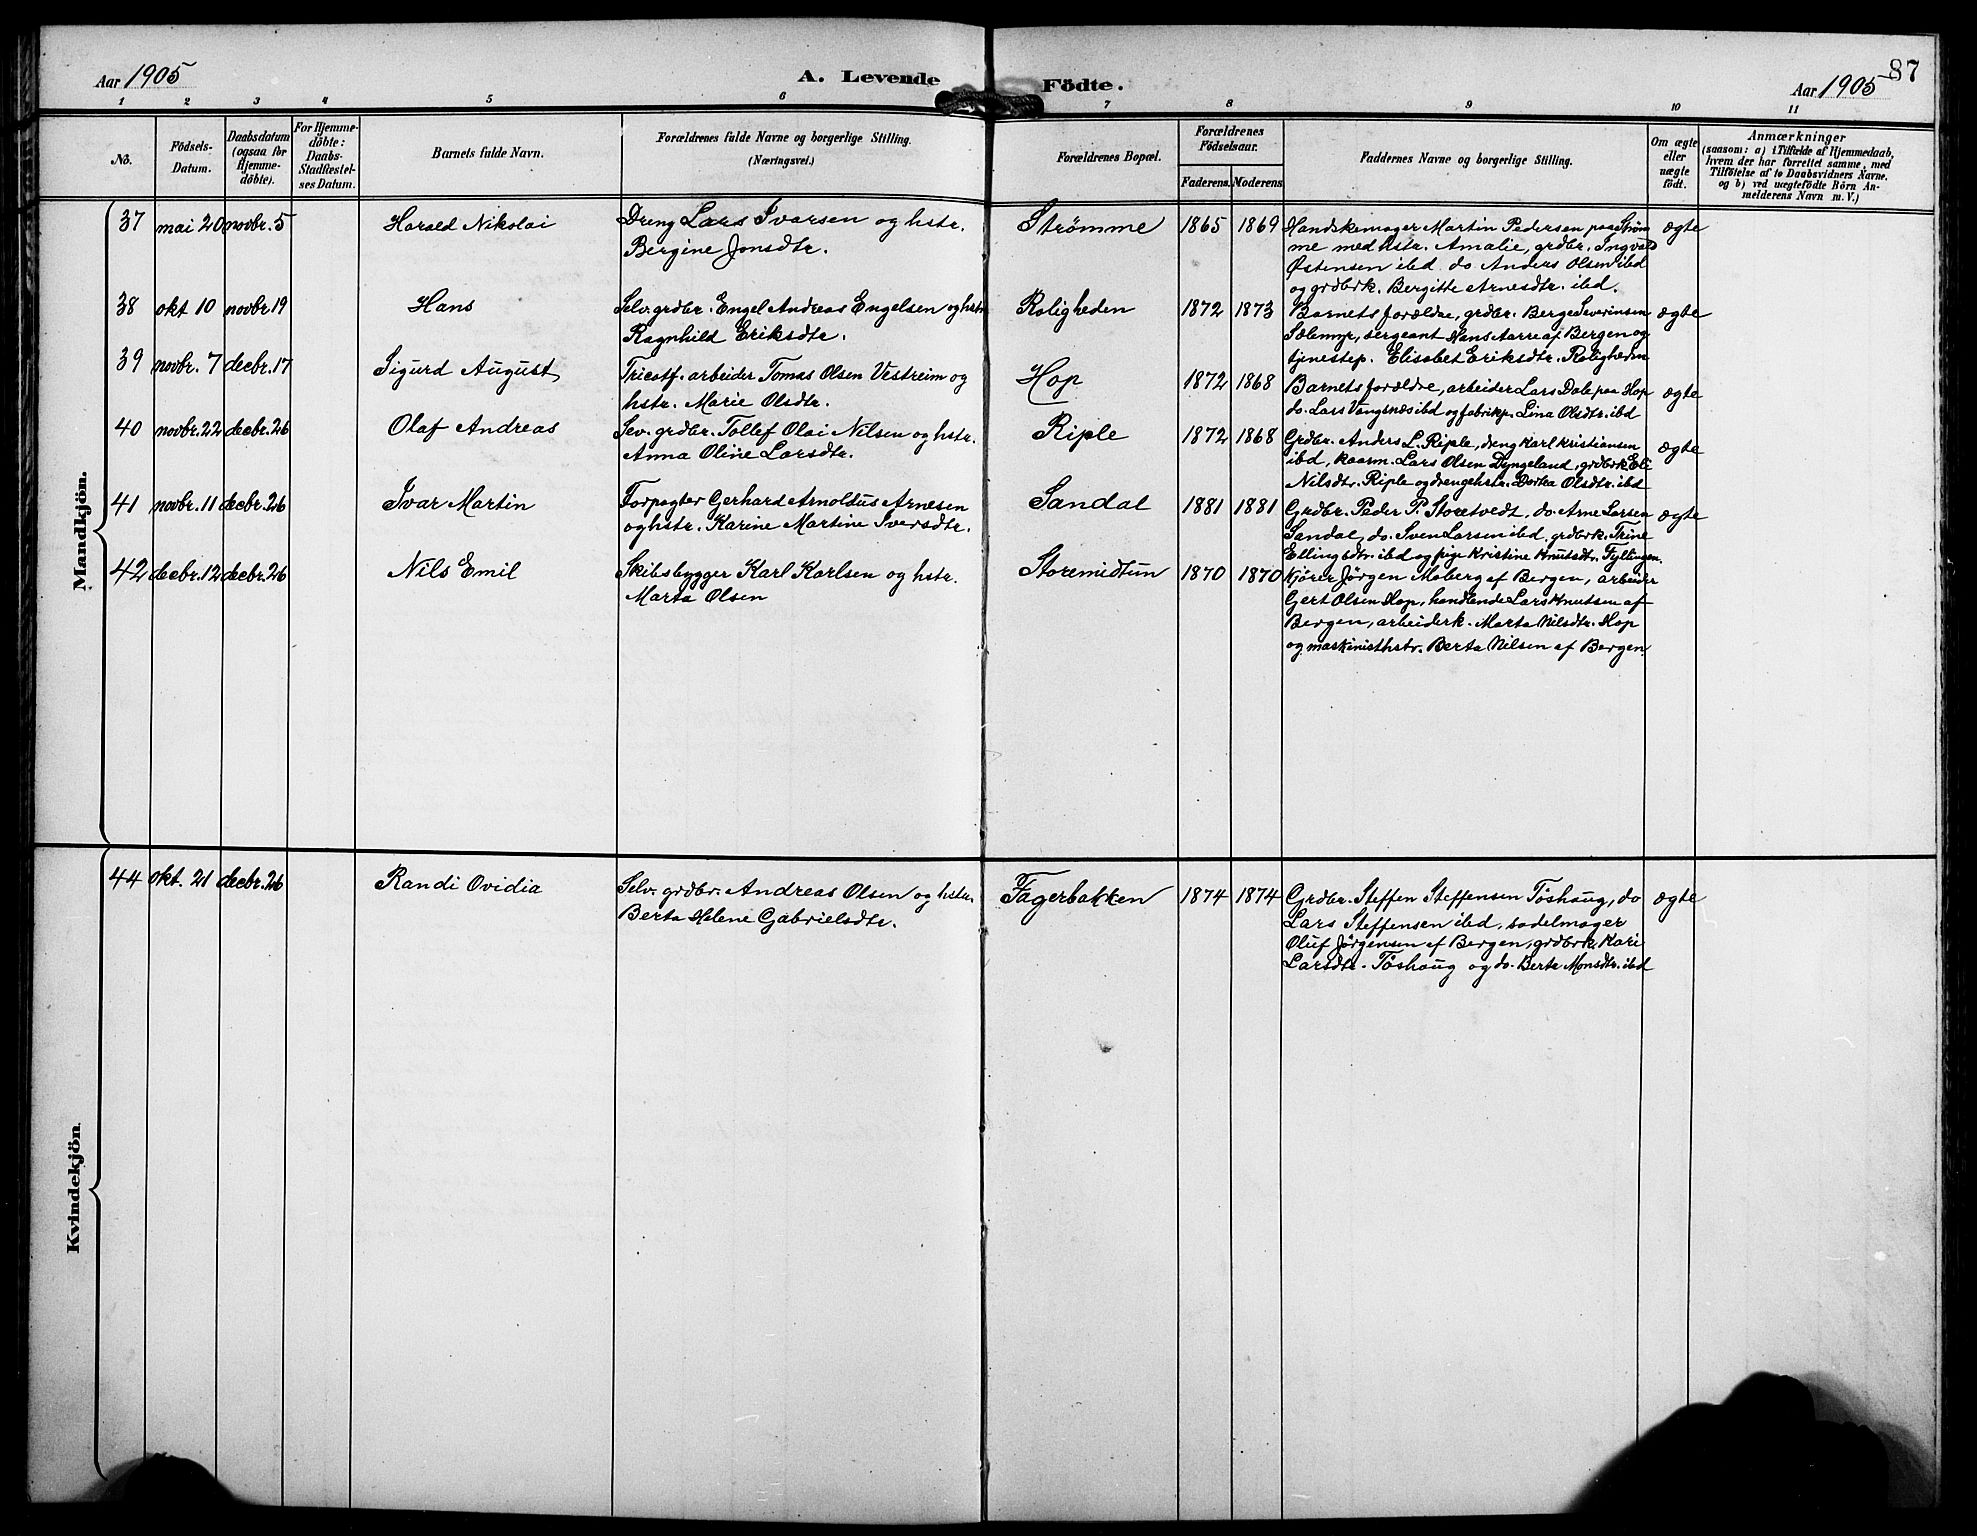 87
Aar 1905
A. Levende
Födte.
Aar 1905
1 2 3 4 5 6 7 8 9 10 11
No.
Födsels-
Datum.
Daabsdatum
(ogsaa for
Hjemme-
döbte).
For Hjemme-
döbte:
Daabs-
Stadfæstel-
ses Datum.
Barnets fulde Navn.
Forældrenes fulde Navne og borgerlige Stilling.
(Næringsvei.)
Forældrenes Bopæl.
Forældrenes
Födselsaar.
Faderens. Moderens.
Faddernes Navne og borgerlige Stilling.
Om ægte
eller
uægte
födt.
Anmærkninger
(saasom: a) i Tilfælde af Hjemmedaab,
hvem der har forrettet samme, med
Tilföielse af to Daabsvidners Navne.
og b) ved uægtefödte Börn An-
melderens Navn m. V.)
Mandkjön.
37 mai 20 novbr. 5 Harald Nikolai
Dreng Lars Ivarsen og hstr.
Bergine Jonsdtr.
Strømme 1865 1869
Handskemager Martin Pedersen paa Strøm
me med hstr. Amalie, grdbr. Ingvald
Østensen ibd do Anders Olsen ibd
og grdbrk. Bergitte Arnesdtr. ibd.
ægte
38 okt 10 novbr 19 Hans
Selv. grdbr. Engel Andreas Engelsen og hstr
Ragnhild Eriksdtr.
Roligheden 1872 1873
Barnets forældre, grdbr. Berge Severinsen
Sælemyr, sergeant Hans Aarre af Bergen og
tjenestep. Elisabet Eriksdtr. Roligheden
ægte
39 novbr. 7 decbr. 17 Sigurd August
Tricotf. arbeider Tomas Olsen Vestreim og
hstr. Marie Olsdtr.
Hop 1872 1868
Barnets forældre, arbeider Lars Dale paa Hop
do. Lars Vangsnes ibd og fabrikp. Lina Olsdtr. ibd
ægte
40 novbr. 22 decbr. 26 Olaf Andreas
Sev. grdbr. Tollef Olai Nilsen og hstr.
Anna Oline Larsdtr.
Riple 1872 1868
Grdbr. Anders L. Riple, dreng Karl Kristiansen
ibd, kaarm. Lars Olsen Dyngeland, grdbrk Eli
Nilsdtr. Riple og drengehstr. Dortea Olsdtr. ibd
ægte
41 novbr. 11 decbr. 26 Ivar Martin
Forpagter Gerhard Arnoldus Arnesen
og hstr. Karine Martine Iversdtr.
Sandal 1881 1881
Grdbr. Peder P. Storetvedt, do. Arne Larsen
Sandal, do. Sven Larsen ibd, grdbrk. Trine
Ellingsdtr. ibd og pige Kristine Knutsdtr. Fyllingen.
ægte
42 decbr. 12 decbr. 26 Nils Emil
Skibsbygger Karl Karlsen og hstr.
Marta Olsen
Storemidtun 1870 1870
Kjører Jörgen Moberg af Bergen, arbeider
Gert Olsen Hop, handlende Lars Knutsen af
Bergen, arbeiderk. Marta Nilsdtr. Hop
og maskinisthstr. Berta Nilsen af Bergen.
Kvindekjön
44 okt. 21 decbr. 26 Randi Ovidia
Selv. grdbr. Andreas Olsen og hstr.
Berta Helene Gabrielsdtr.
Fagerbakken 1874 1874
Grdbr. Steffen Steffensen Töshaug, do
Lars Steffensen ibd, sadelmager
Oluf Jörgensen af Bergen, grdbrk. Kari
Larsdtr. Töshaug og do. Berte Monsdtr. ibd
ægte